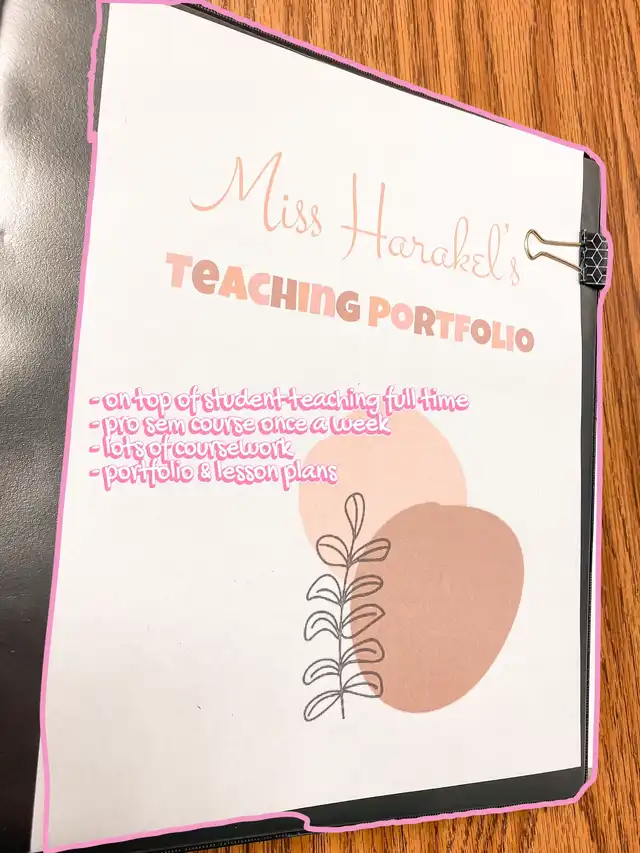 Miss Harakel's
TEACHING PORTFOLIO
- on top of student teaching full time
- pro sem course once a week
- lots of coursework
- portfolio & lesson plans